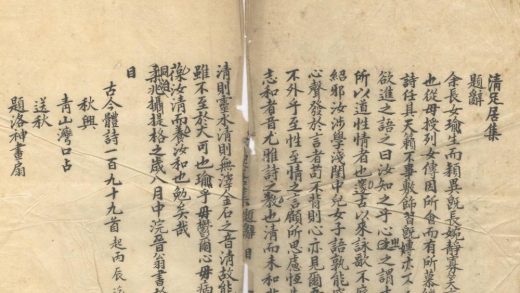 清足居集
題辭
余長女瑜生而穎異旣長婉靜寡天
也從母授列女傳因所會而有所慕
詩任其天籟不事敷飾旣嫁亦
欲進之語之曰汝知之乎心之謂
所以道性情者也邃古以來詠歌不
紹邪汝涉學淺閨中兒女子語孰能
心聲發於言者苟不背則心亦見爾
不外乎至性至情之言顧所思慮恆
志和者音尤雅詩之敎也清而未和
題辭 目
清則靈水清則無滓金石之音清故能
雖不至於大可也瑜乎毋鬱爾心毋病
葆汝清而養汝和也勉矣哉
柔兆攝提格之歲八月中浣晉翁書於
目
古今體詩一百九十九首 起丙辰
秋興
青山灣口占
送秋
題洛神畫扇